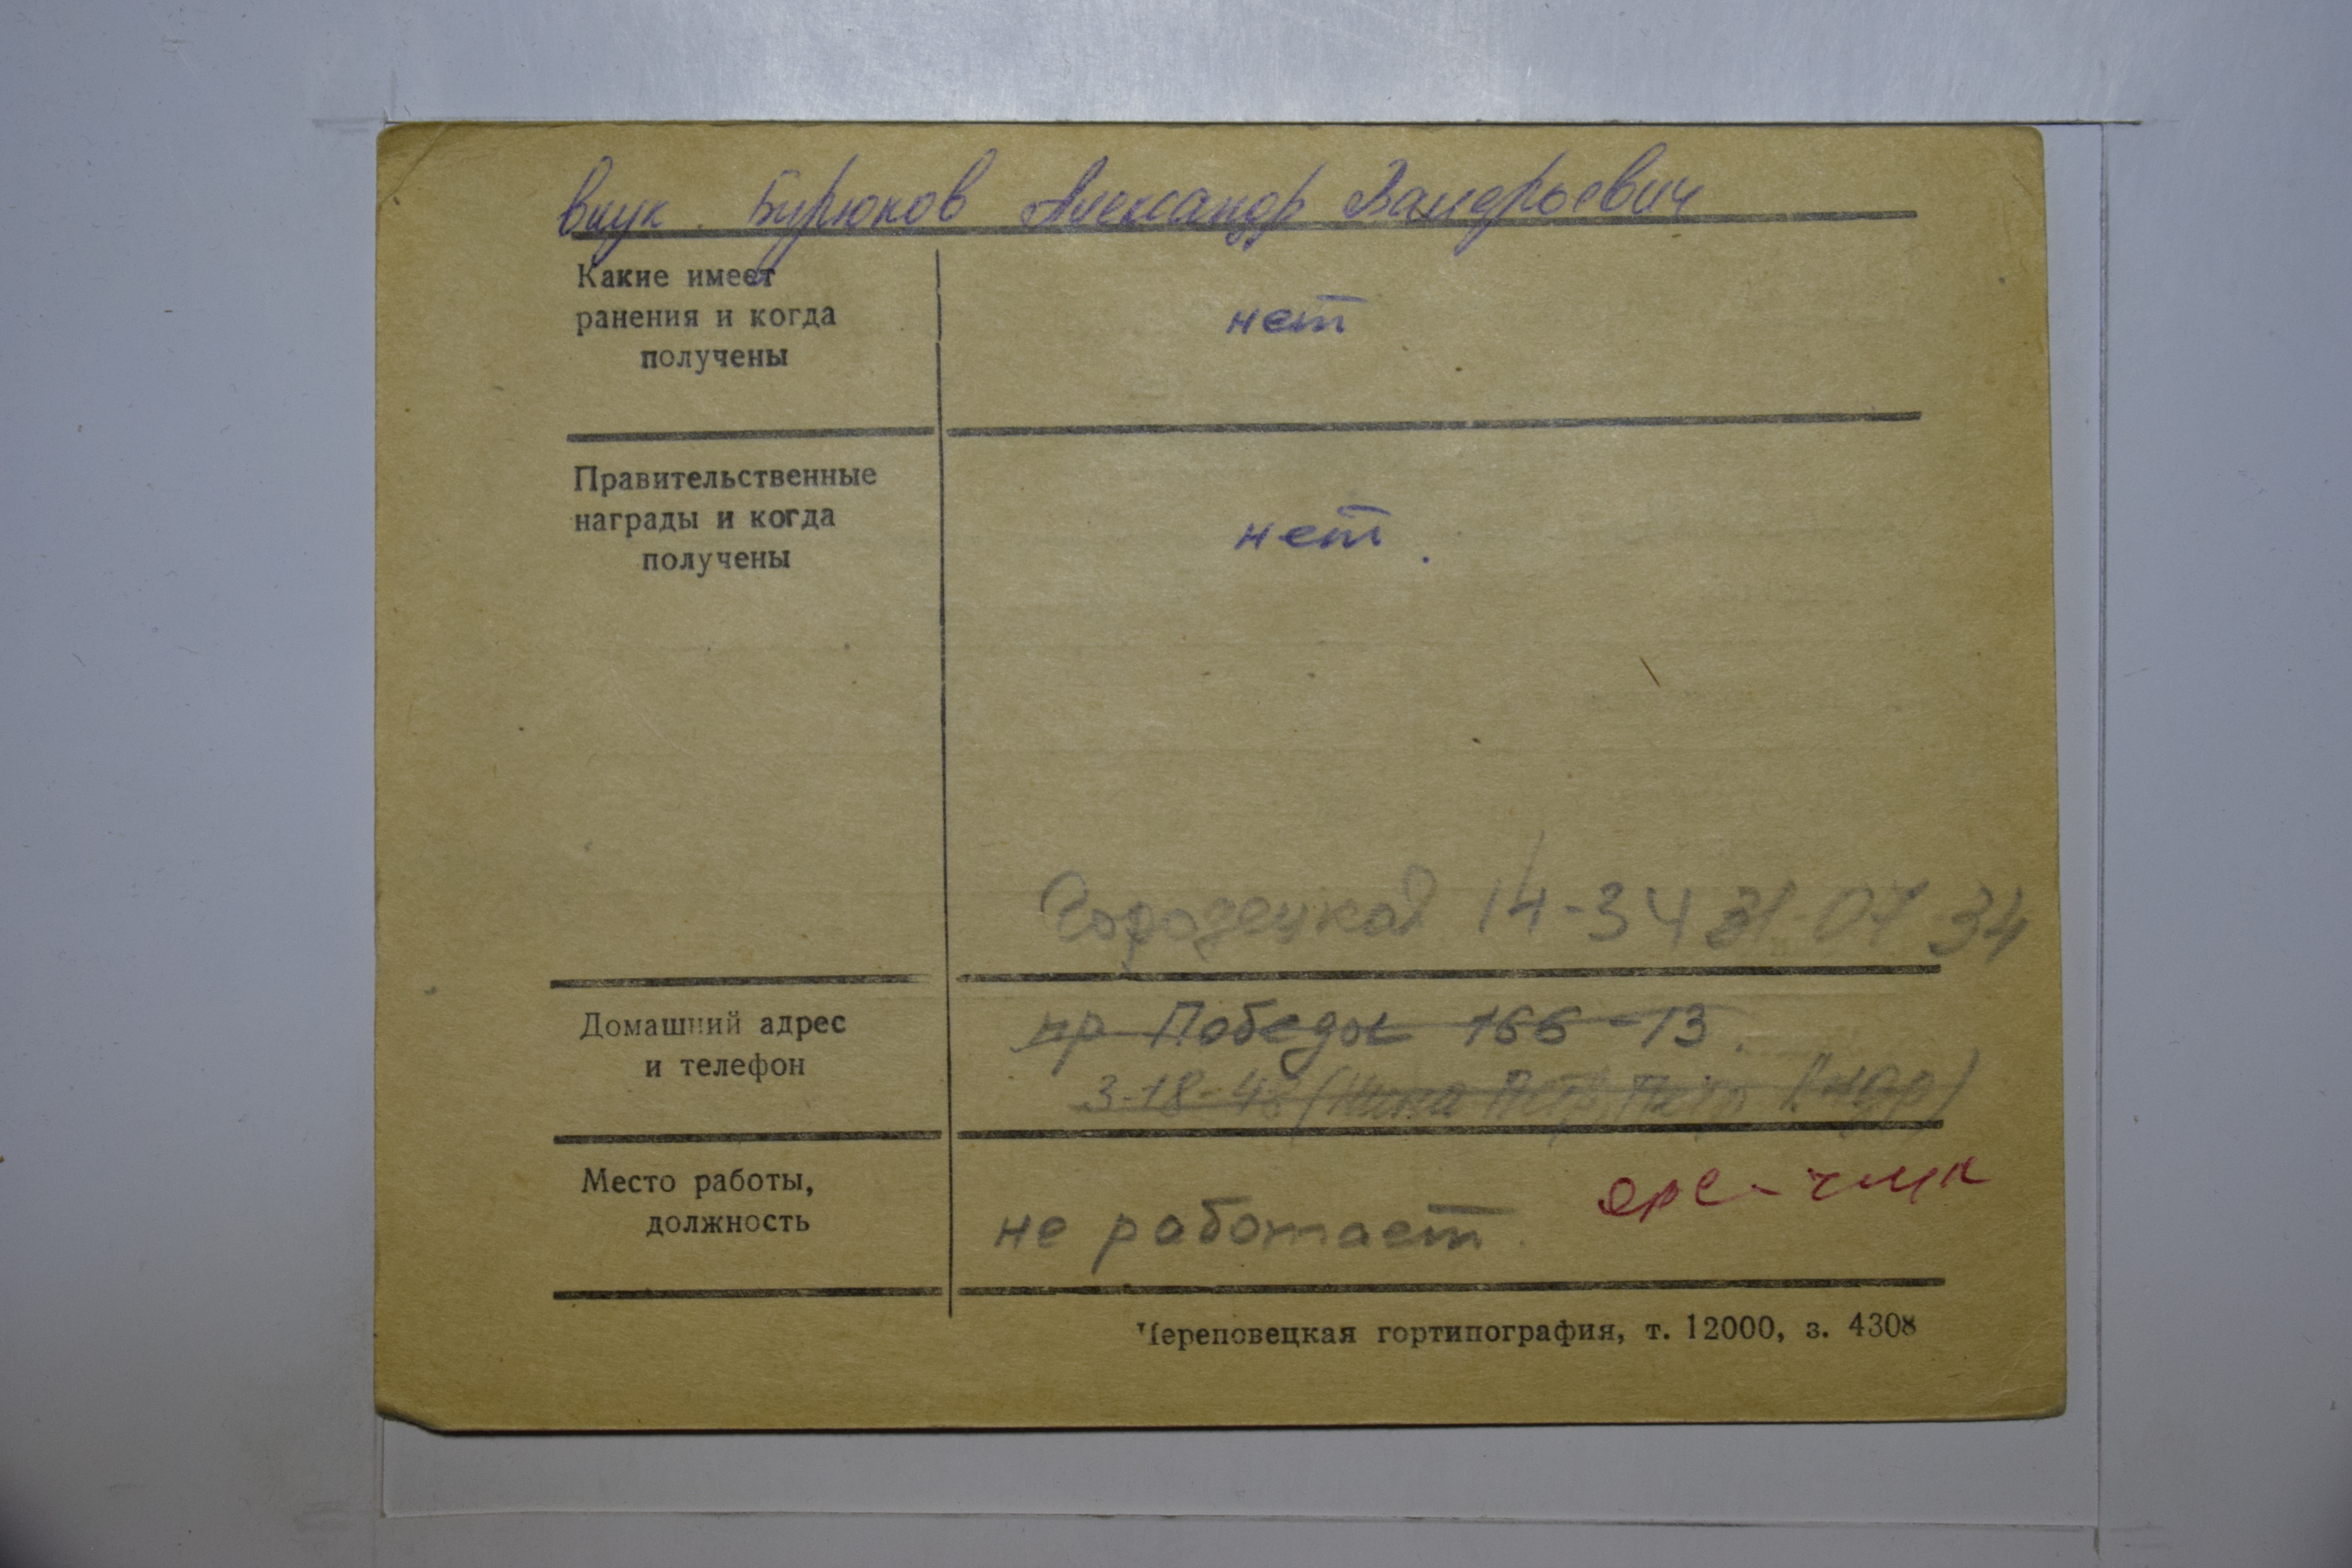 внук. Бурюков Александр Валерьевич
Какие имеет
ранения и когда
получены
нет
Правительственные
награды и когда
получены
нет.
Городецкая 14-34 31 07 34
Домашний адрес
и телефон
пр Победы 166-13.
3-18-48 (Нина Петр,
Место работы,
должность
не работает.
Череповецкая гортипография, т. 12000, з. 4308